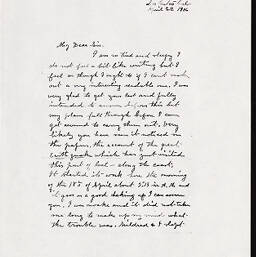 April 22 1906
My Dear Sir.
I am so tired and sleepy I
do not feel a bit like writing but I
feel as though I ought to if I can't make
out a very interesting readable one. I was
very glad to get your last and fully
intended to answer before this but
my plans fell through before I can
get around to carry them out. Very
likely you have seen it noticed in
the papers, the account of the great
Earth quake which has just visited
this part of coast along the coast,
It started its work here the morning
of the 18th of April about 5:13 in A.M. and
it gave us a good shaking up I can assure
you. I was awake and it did not take
me long to make up my mind what
the trouble was. Mildred & I slept